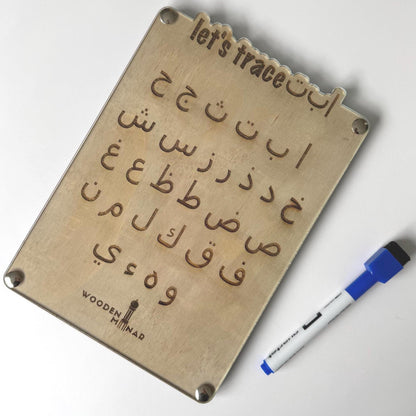 let's trace ابت
ا ب ت ث ج ح
خ د ذ ر ز س ش
ص ض ط ظ ع غ
ف ق ك ل م ن
و ه ء ي
WOODEN
MINAR